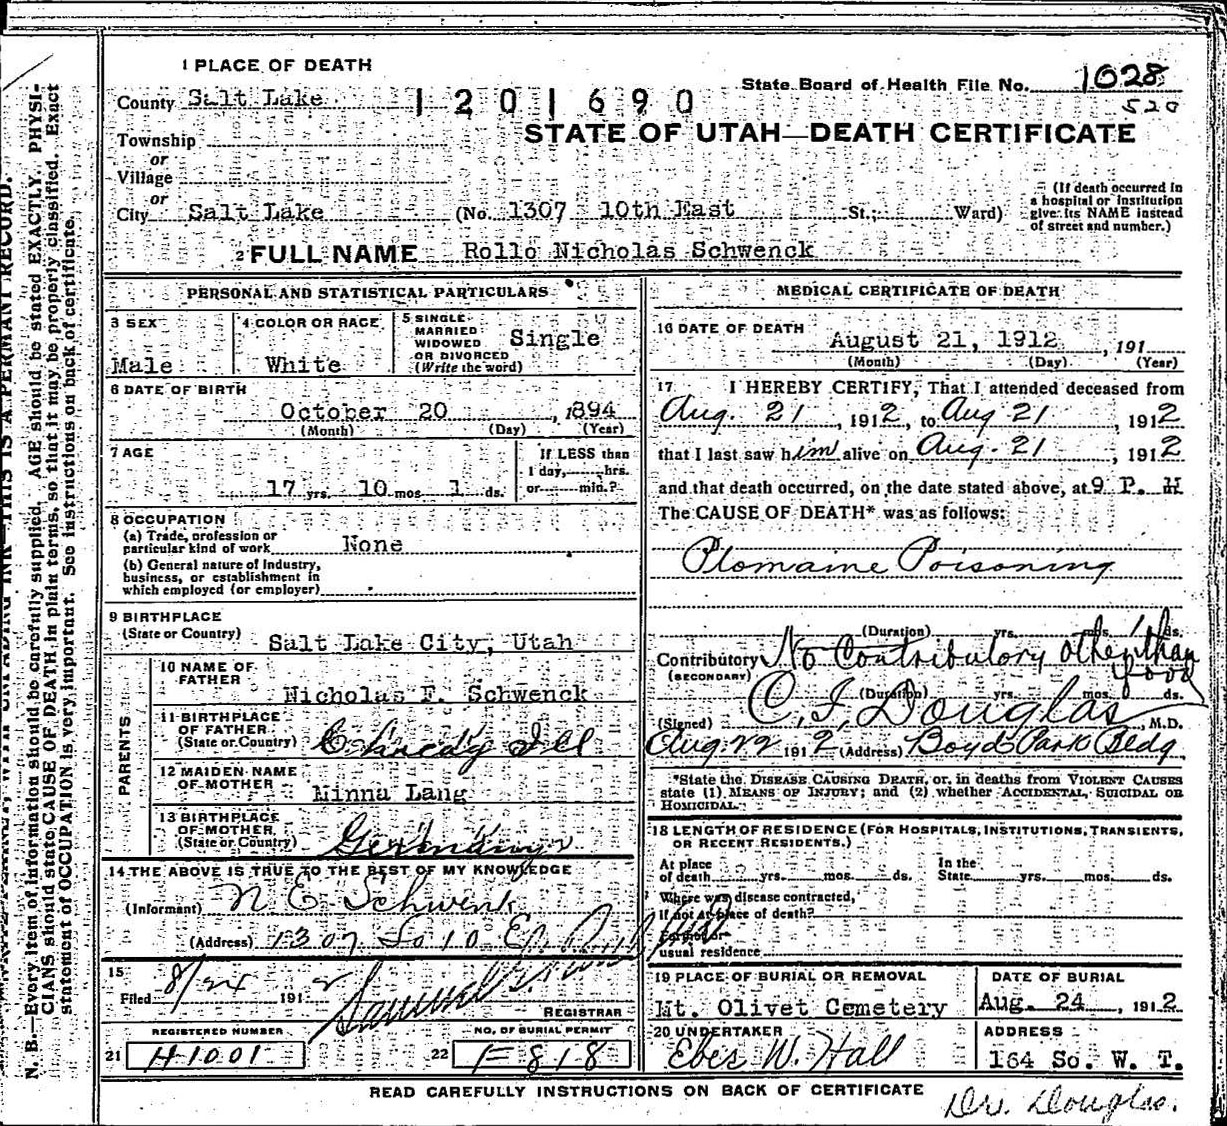 1 PLACE OF DEATH
County Salt Lake
1201690
State Board of Health File No. 1028
520
STATE OF UTAH—DEATH CERTIFICATE
Township
or
Village
or
City Salt Lake (No. 1307 10th East St.; Ward)
(If death occurred in
a hospital or institution
give its NAME instead
of street and number.)
2 FULL NAME Rollo Nicholas Schwenck
PERSONAL AND STATISTICAL PARTICULARS
3 SEX
Male
4 COLOR OR RACE
White
5 SINGLE
MARRIED
WIDOWED
OR DIVORCED
(Write the word)
Single
6 DATE OF BIRTH
October 20, 1894
(Month) (Day) (Year)
7 AGE
17 yrs. 10 mos 1 ds.
If LESS than
1 day, hrs.
or min.?
8 OCCUPATION
(a) Trade, profession or
particular kind of work None
(b) General nature of industry,
business, or establishment in
which employed (or employer)
9 BIRTHPLACE
(State or Country) Salt Lake City, Utah
PARENTS
10 NAME OF
FATHER
Nicholas F. Schwenck
11 BIRTHPLACE
OF FATHER
(State or Country) Ill
12 MAIDEN NAME
OF MOTHER Minna Lang
13 BIRTHPLACE
OF MOTHER
(State or Country) Germany
14 THE ABOVE IS TRUE TO THE BEST OF MY KNOWLEDGE
(Informant) N E Schwenk
(Address) 1307 So 10 E
15
Filed 8/24 1912
REGISTRAR
REGISTERED NUMBER
21 H1001
NO. OF BURIAL PERMIT
22 F 818
MEDICAL CERTIFICATE OF DEATH
16 DATE OF DEATH
August 21, 1912, 191
(Month) (Day) (Year)
17 I HEREBY CERTIFY, That I attended deceased from
Aug. 21, 1912, to Aug 21, 1912
that I last saw him alive on Aug. 21, 1912
and that death occurred, on the date stated above, at 9 P. M
The CAUSE OF DEATH* was as follows:
Ptomaine Poisoning
(Duration) yrs. mos. 1 ds.
Contributory No Contributory other than
food
(SECONDARY)
(Duration) yrs. mos. ds.
(Signed) C. I. Douglas M.D.
Aug 22 1912 (Address) Boyd Park Bldg.
*State the DISEASE CAUSING DEATH, or, in deaths from VIOLENT CAUSES
state (1) MEANS OF INJURY; and (2) whether ACCIDENTAL, SUICIDAL OR
HOMICIDAL.
18 LENGTH OF RESIDENCE (FOR HOSPITALS, INSTITUTIONS, TRANSIENTS,
OR RECENT RESIDENTS.)
At place
of death yrs. mos. ds.
In the
State yrs. mos. ds.
Where was disease contracted,
if not at place of death?
Former or
usual residence
19 PLACE OF BURIAL OR REMOVAL
Mt. Olivet Cemetery
DATE OF BURIAL
Aug. 24, 1912
20 UNDERTAKER
Eber W. Hall
ADDRESS
164 So. W. T.
READ CAREFULLY INSTRUCTIONS ON BACK OF CERTIFICATE
Dr. Douglas.
THIS IS A PERMANT RECORD.
N. B.—Every item of information should be carefully supplied. AGE should be stated EXACTLY. PHYSI-
CIANS should state CAUSE OF DEATH in plain terms, so that it may be properly classified. Exact
statement of OCCUPATION is very important. See instructions on back of certificate.